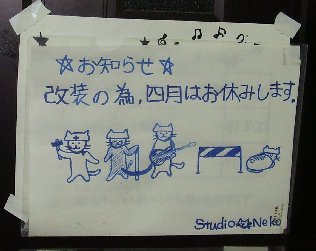 ☆お知らせ☆
改装の為,四月はお休みします。
Studio Neko